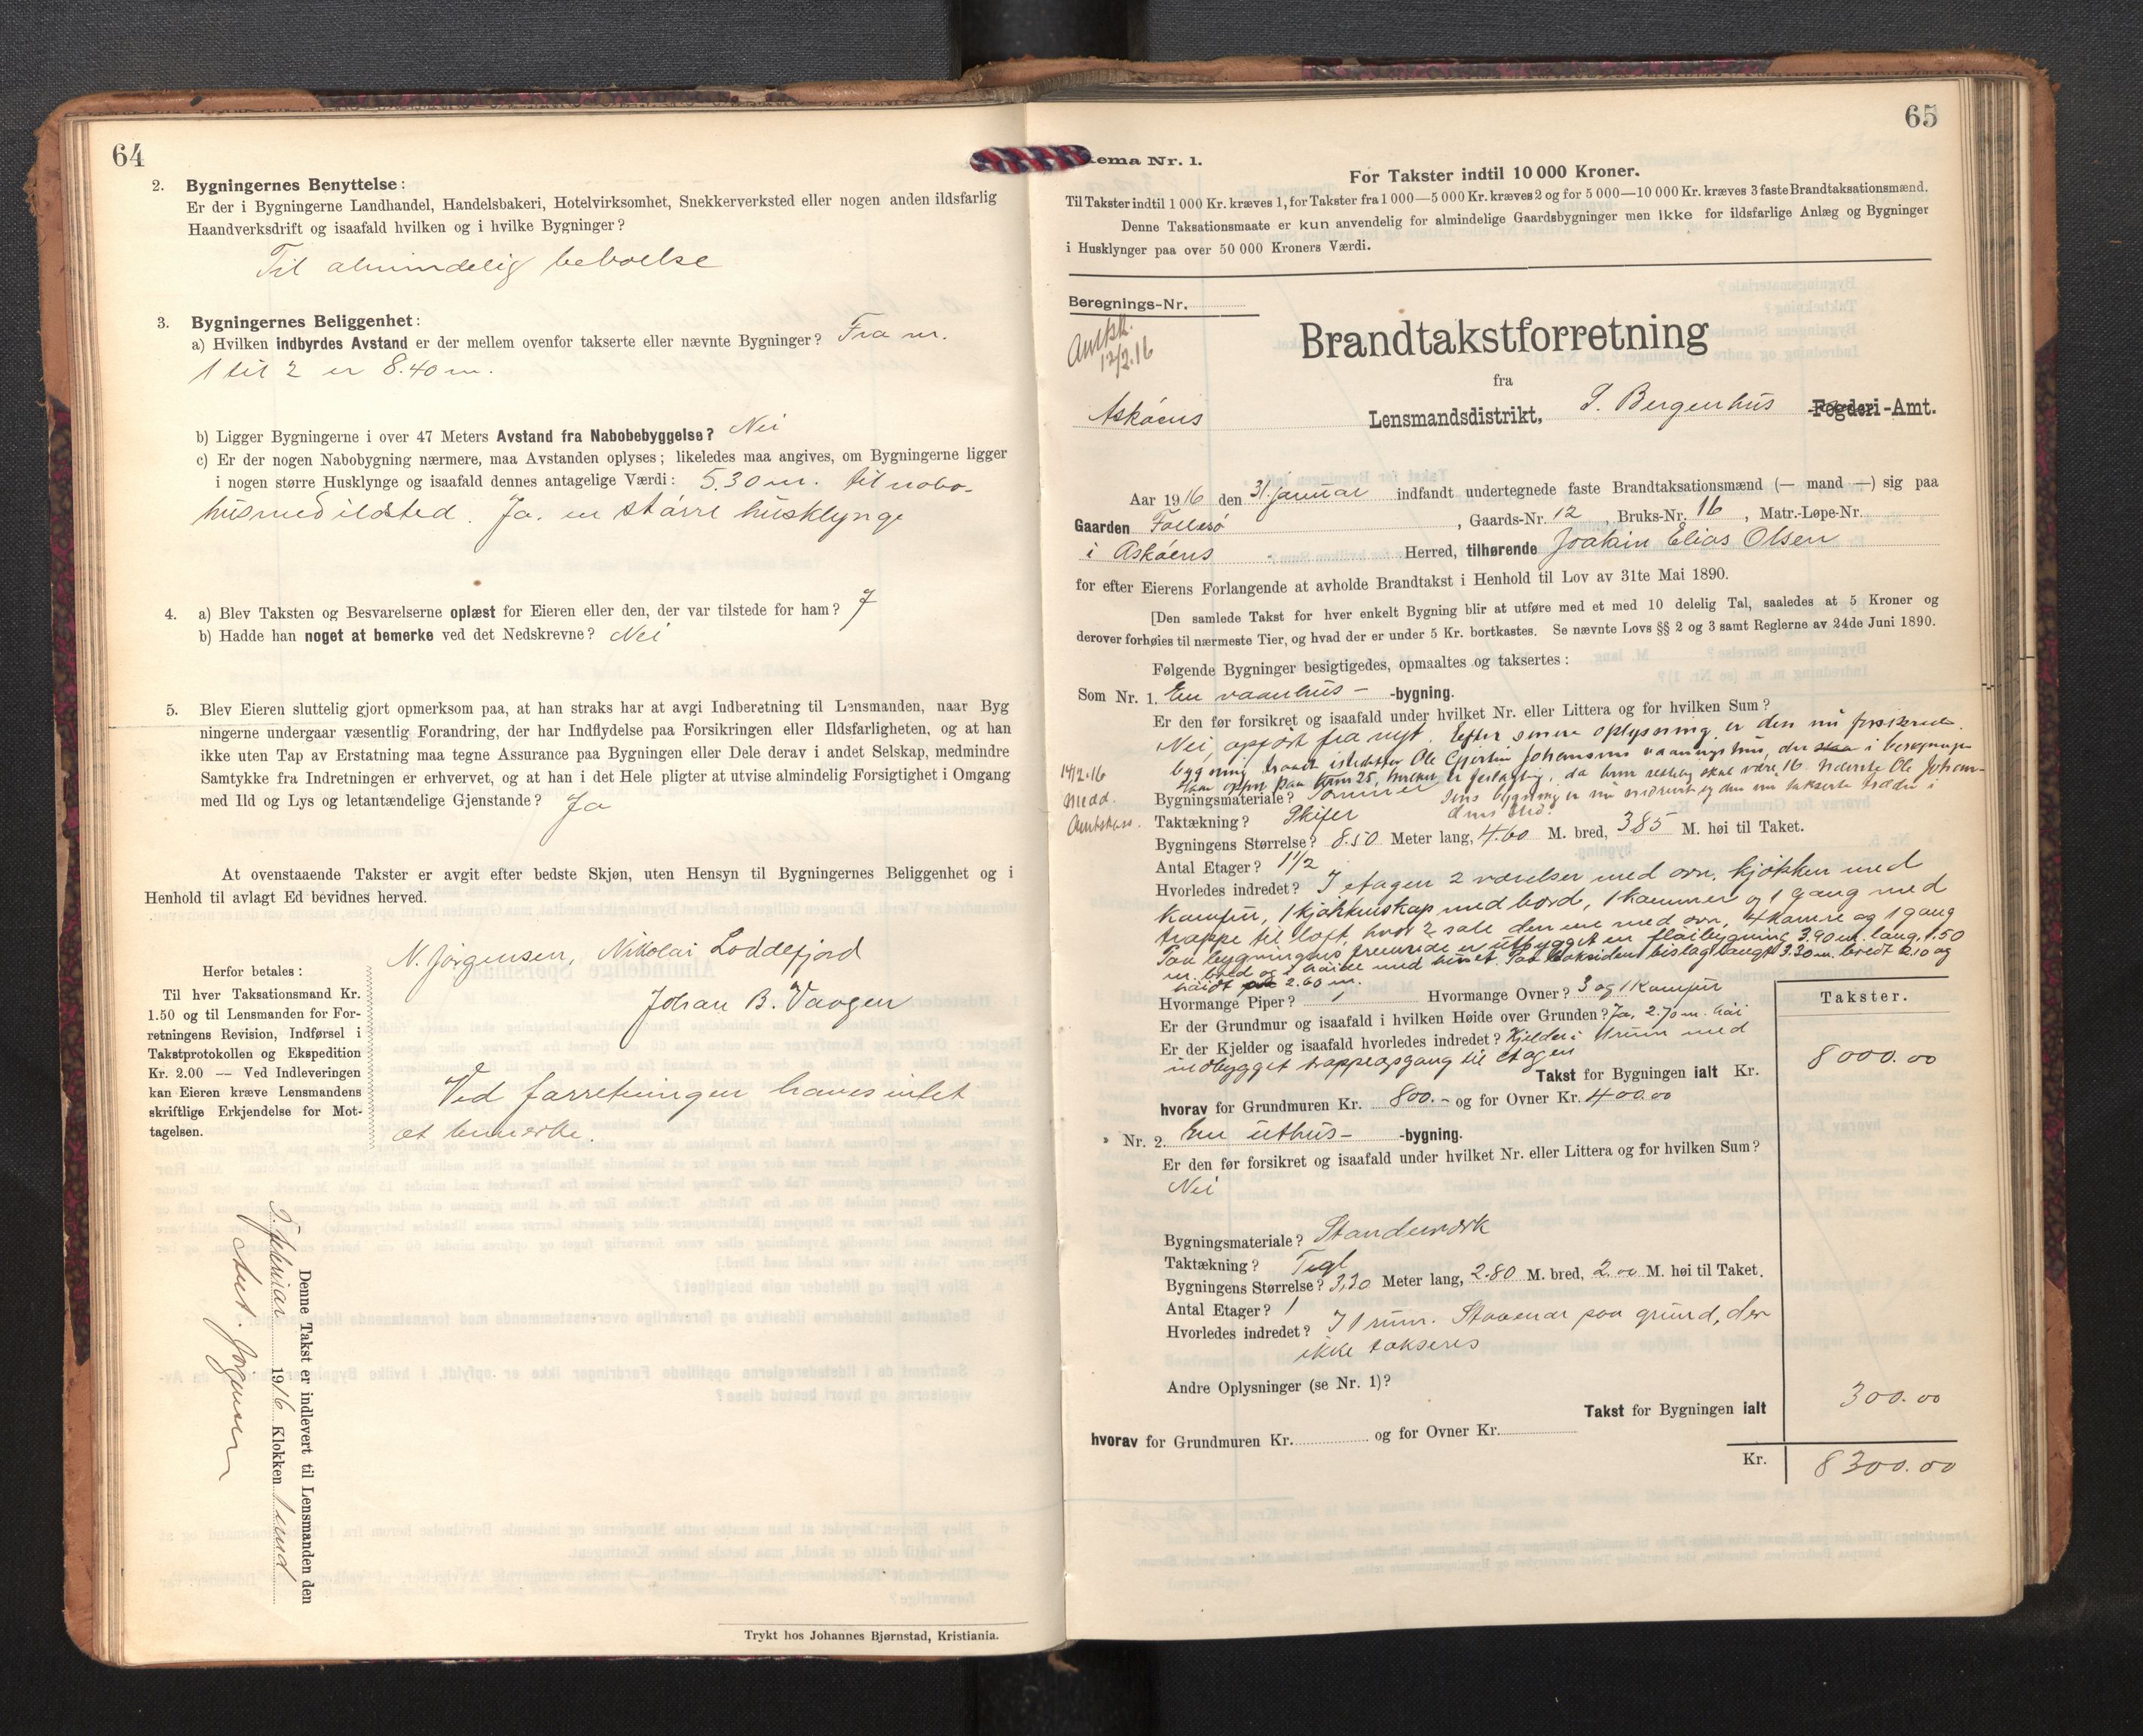 64
2. Bygningernes Benyttelse:
Er der i Bygningerne Landhandel, Handelsbakeri, Hotelvirksomhet, Snekkerverksted eller nogen anden ildsfarlig
Haandverksdrift og isaafald hvilken og i hvilke Bygninger?
Til almindelig beboelse
3. Bygningernes Beliggenhet:
a) Hvilken indbyrdes Avstand er der mellem ovenfor takserte eller nævnte Bygninger? Fra nr.
1 til 2 er 8.40 m.
b) Ligger Bygningerne i over 47 Meters Avstand fra Nabobebyggelse? Nei
c) Er der nogen Nabobygning nærmere, maa Avstanden oplyses; likeledes maa angives, om Bygningerne ligger
i nogen større Husklynge og isaafald dennes antagelige Værdi: 5.30 m. til nabo-
hus med ildsted. Ja. en større husklynge
4. a) Blev Taksten og Besvarelserne oplæst for Eieren eller den, der var tilstede for ham? J
b) Hadde han noget at bemerke ved det Nedskrevne? Nei
5. Blev Eieren sluttelig gjort opmerksom paa, at han straks har at avgi Indberetning til Lensmanden, naar Byg
ningerne undergaar væsentlig Forandring, der har Indflydelse paa Forsikringen eller Ildsfarligheten, og at han
ikke uten Tap av Erstatning maa tegne Assurance paa Bygningen eller Dele derav i andet Selskap, medmindre
Samtykke fra Indretningen er erhvervet, og at han i det Hele pligter at utvise almindelig Forsigtighet i Omgang
med Ild og Lys og letantændelige Gjenstande? Ja
At ovenstaaende Takster er avgit efter bedste Skjøn, uten Hensyn til Bygningernes Beliggenhet og i
Henhold til avlagt Ed bevidnes herved.
N. Jørgensen, Nikolai Loddefjord
Johan B. Vaagen
Herfor betales:
Til hver Taksationsmand Kr.
1.50 og til Lensmanden for For-
retningens Revision, Indførsel i
Takstprotokollen og Ekspedition
Kr. 2.00 — Ved Indleveringen
kan Eieren kræve Lensmandens
skriftlige Erkjendelse for Mot-
tagelsen.
Ved forretningen haves intet
at bemerke.
Denne Takst er indlevert til Lensmanden den
3. februar 1916 Klokken 1 emd
Jørgensen
Trykt hos Johannes Bjørnstad, Kristiania.
65
ema Nr. 1.
For Takster indtil 10 000 Kroner.
Til Takster indtil 1 000 Kr. kræves 1, for Takster fra 1 000—5 000 Kr. kræves 2 og for 5 000—10 000 Kr. kræves 3 faste Brandtaksationsmænd.
Denne Taksationsmaate er kun anvendelig for almindelige Gaardsbygninger men ikke for ildsfarlige Anlæg og Bygninger
i Husklynger paa over 50 000 Kroners Værdi.
Beregnings-Nr.
12/2.16
Brandtakstforretning
fra
Askøens Lensmandsdistrikt, S. Bergenhus Fogderi-Amt.
Aar 1916 den 31. januar indfandt undertegnede faste Brandtaksationsmænd (— mand —) sig paa
Gaarden Follesø, Gaards-Nr. 12, Bruks-Nr. 16, Matr.-Løpe-Nr.
i Askøens Herred, tilhørende Joakim Elias Olsen
for efter Eierens Forlangende at avholde Brandtakst i Henhold til Lov av 31te Mai 1890.
[Den samlede Takst for hver enkelt Bygning blir at utføre med et med 10 delelig Tal, saaledes at 5 Kroner og
derover forhøies til nærmeste Tier, og hvad der er under 5 Kr. bortkastes. Se nævnte Lovs §§ 2 og 3 samt Reglerne av 24de Juni 1890.
Følgende Bygninger besigtigedes, opmaaltes og taksertes:
Som Nr. 1. En vaanhus- -bygning.
Er den før forsikret og isaafald under hvilket Nr. eller Littera og for hvilken Sum?
Nei, opført fra nyt. Efter senere oplysning er den nu forsikrede
bygning traadt istedetfor Ole Gjertin Johansens vaaningshus, der staa i
14/2.16
Medd.
Bygningsmateriale? Tømmer
Taktækning? Skifer
Bygningens Størrelse? 8.50 Meter lang, 4.60 M. bred, 385 M. høi til Taket.
Antal Etager? 1 1/2
Hvorledes indredet? I etagen 2 værelser med ovn, kjøkken med
komfur, 1 kjøkkenskap med bord, 1 kammer og 1 gang med
trappe til loft, hvor 2 sale den ene med ovn, 4 kamre og 1 gang
Paa bygningens fremside er utbygget en fløibygning 3.90 m. lang, 1.50
m. bred og i høide med huset. Paa baksiden bislag langt 3.30 m. bredt 2.10 og
høidt 2.60 m.
Hvormange Piper? 1 Hvormange Ovner? 3 og 1 komfur
Er der Grundmur og isaafald i hvilken Høide over Grunden? Ja, 2.70 m. høi
Er der Kjelder og isaafald hvorledes indredet? Kjelder i 1 rum med
indbygget trappeopgang til etagen
Takster.
Takst for Bygningen ialt Kr. 8000.00
hvorav for Grundmuren Kr. 800.- og for Ovner Kr. 400.00
Nr. 2. En uthus- -bygning.
Er den før forsikret og isaafald under hvilket Nr. eller Littera og for hvilken Sum?
Nei
Bygningsmateriale? Standerverk
Taktækning? Tegl
Bygningens Størrelse? 3,20 Meter lang, 2.80 M. bred, 2.00 M. høi til Taket.
Antal Etager? 1
Hvorledes indredet? I 1 rum. Staaende paa grund, der
ikke takseres
Andre Oplysninger (se Nr. 1)?
Takst for Bygningen ialt 300.00
hvorav for Grundmuren Kr. og for Ovner Kr.
Kr. 8300.00